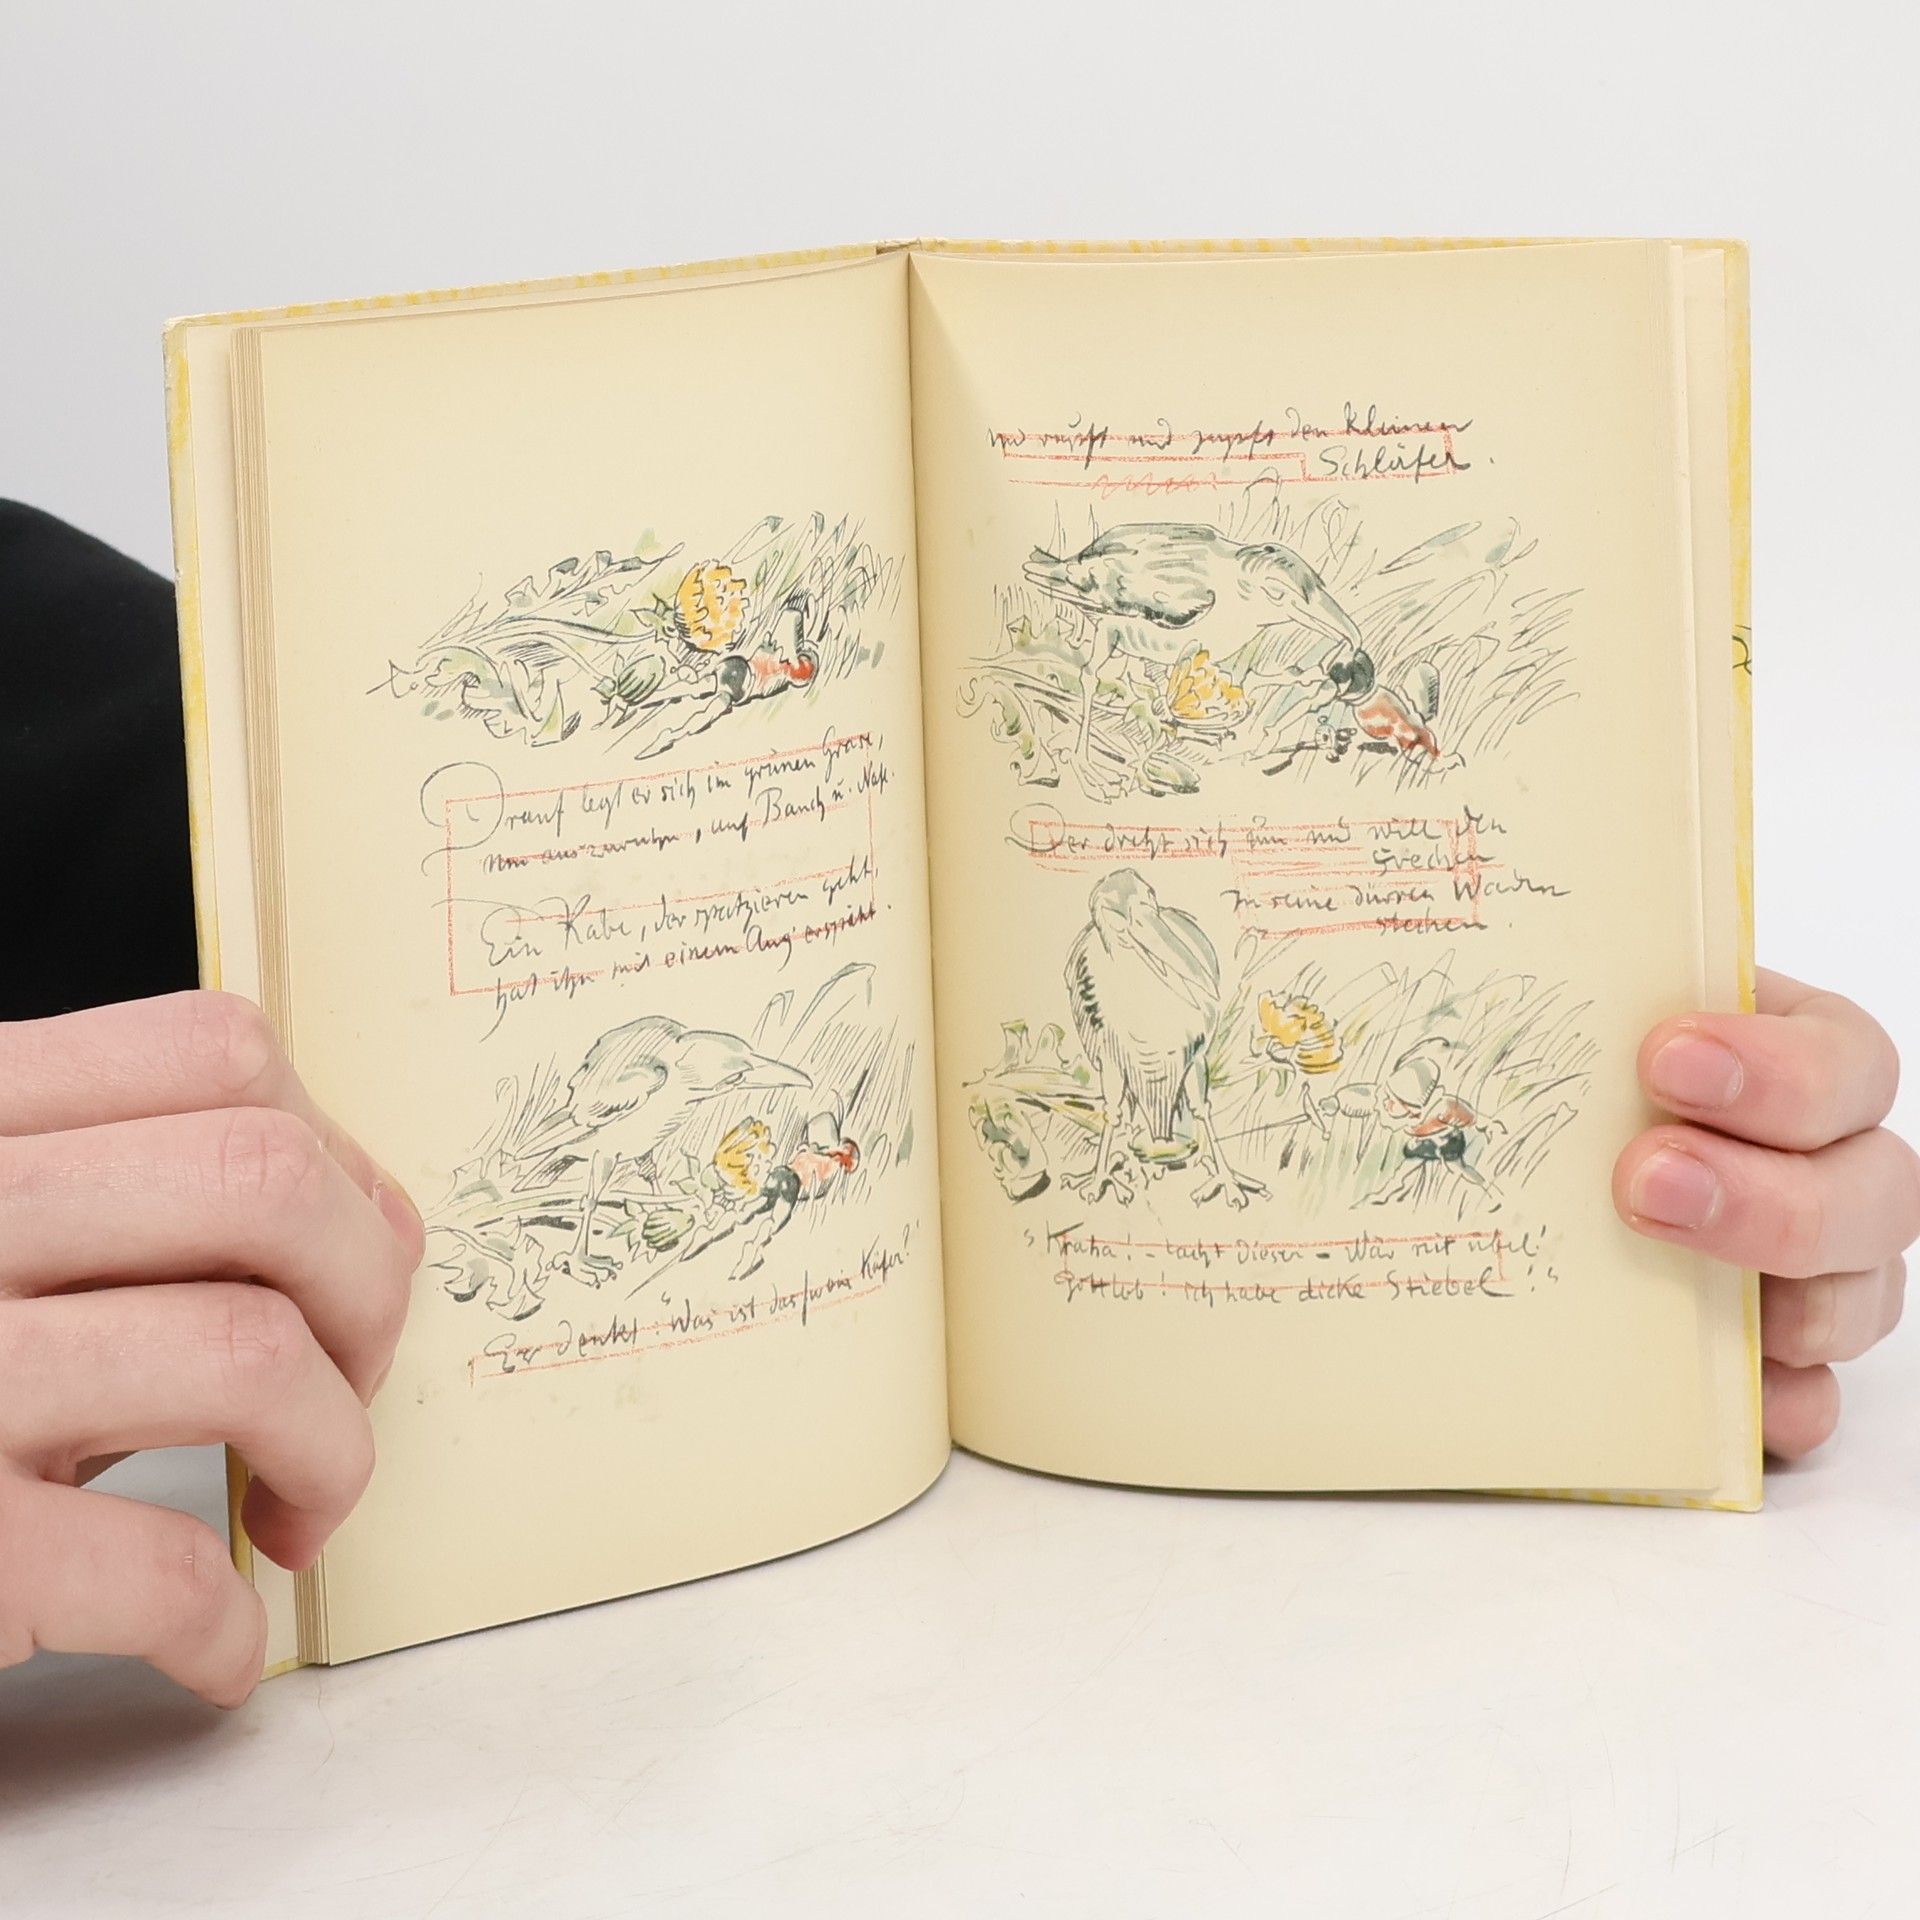 Drauf legt er sich im grünen Grase,
Um auszuruhn, auf Bauch u. Nase.
Ein Rabe, der spatzieren geht,
hat ihn mit einem Aug' erspäht.
Er denkt: "Was ist das für ein Käfer?"
und rupft und zupft den kleinen
Schläfer.
Der dreht sich um und will den
Frechen
In seine dürren Waden
stechen.
"Kraha! – lacht Dieser – Wär mir übel!
Gottlob! ich habe dicke Stiebel!"